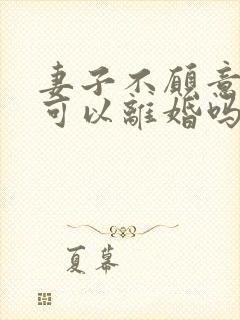 妻子不願意
可以離婚嗎
夏幕